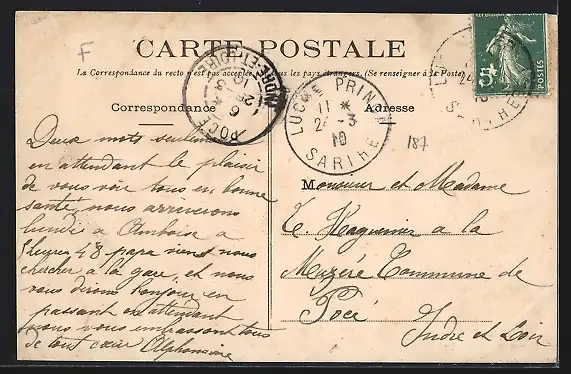 F
CARTE POSTALE
La Correspondance du recto n'est pas acceptée par tous les pays étrangers. (Se renseigner à la Poste)
Correspondance
Adresse
POCÉ
INDRE-ET-LOIRE
LUCÉ PRIN
11 *
24 -3
10
SARTHE
POSTES
5
187
Deux mots seulement
en attendant le plaisir
de vous voir tous en bonne
santé, nous arriverons
lundi a Amboise a
heures 43 papa vient nous
chercher à la gare, et nous
vous dirons bonjour en
passant en attendant
nous vous embrassons tous
de tout cœur Alphonsine
Monsieur et Madame
a la
Commune de
Pocé
Indre et Loir